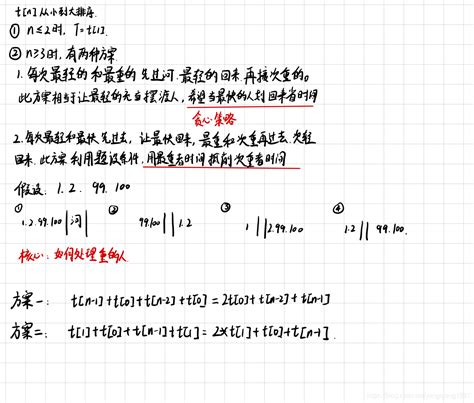 t[n] 从小到大排序.
① n≤2时, T=t[1].
② n≥3时, 有两种方案.
1. 每次最轻的和最重的先过河. 最轻的回来. 再接次重的。
此方案相当于让最轻的充当摆渡人, 希望当最快的人划回来省时间
贪心策略
2. 每次最轻和最快先过去, 让最快回来, 最重和次重再过去. 次轻
回来. 此方案利用题设条件, 用最重者时间抵消次重者时间
假设: 1. 2. 99. 100
① ② ③ ④
1.2.99.100 |河| 99.100 | | 1.2 1 | | 2.99.100 1.2 | | 99.100.
核心: 如何处理重的人
方案一: t[n-1]+t[0]+t[n-2]+t[0] = 2t[0]+t[n-2]+t[n-1]
方案二: t[1]+t[0]+t[n-1]+t[1] = 2×t[1]+t[0]+t[n-1].